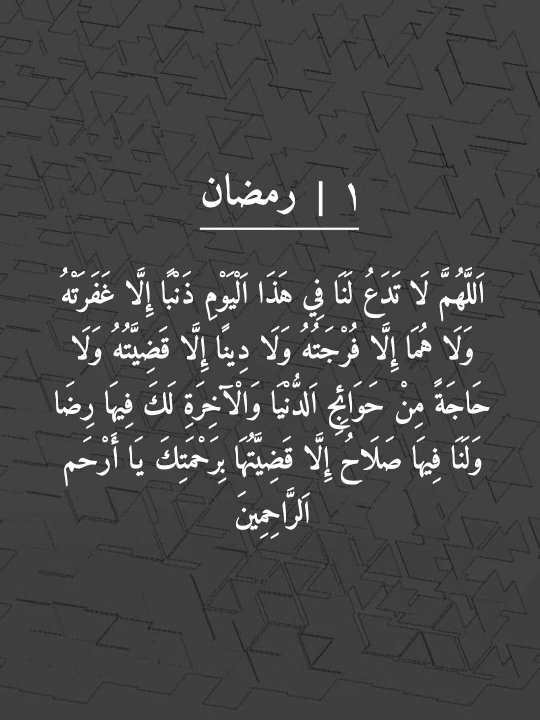 ١ | رمضان
اَللَّهُمَّ لَا تَدَعُ لَنَا فِي هَذَا اَلْيَوْمِ ذَنْبًا إِلَّا غَفَرَتْهُ
وَلَا هُمَا إِلَّا فُرْجَتُهُ وَلَا دِينًا إِلَّا قَضِيَّتُهُ وَلَا
حَاجَةً مِنْ حَوَائِجِ اَلدُّنْيَا وَالْآخِرَةِ لَكَ فِيهَا رِضَا
وَلَنَا فِيهَا صَلَاحُ إِلَّا قَضِيَّتُهَا بِرَحْمَتِكَ يَا أَرْحَم
اَلرَّاحِمِينَ